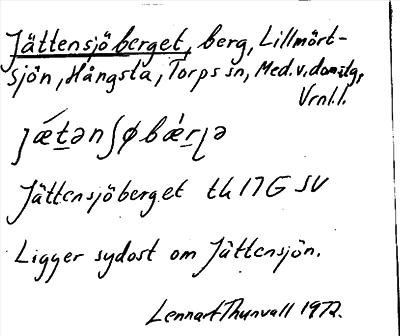 Jättensjöberget, berg, Lillmört-
sjön, Hångsta, Torps sn, Med. v. domstg,
Vrnl. l.
Jättensjöberget th 17G SV
Ligger sydost om Jättensjön.
Lennart Thunvall 1972.